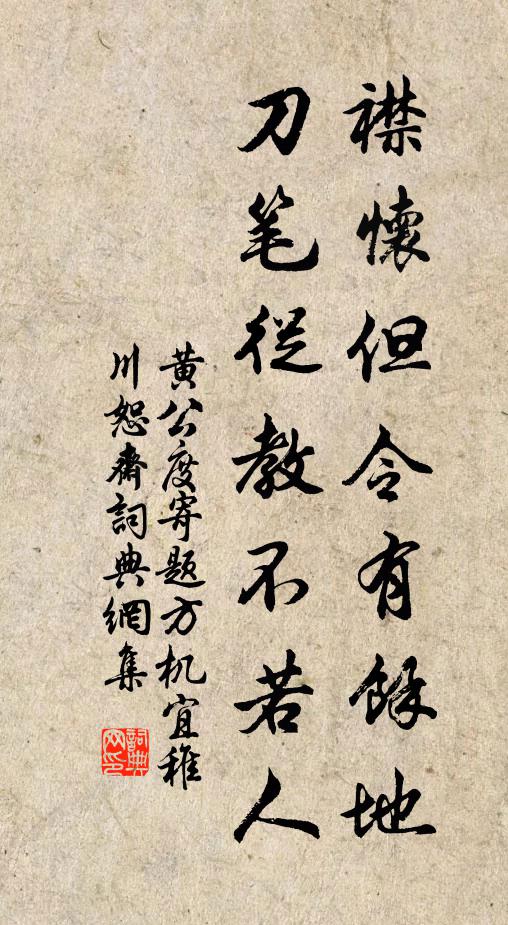 襟懷但令有餘地
刀笔從教不若人
黄公度寄题方机宜稚
川恕齋詞典網集
詞典
网印